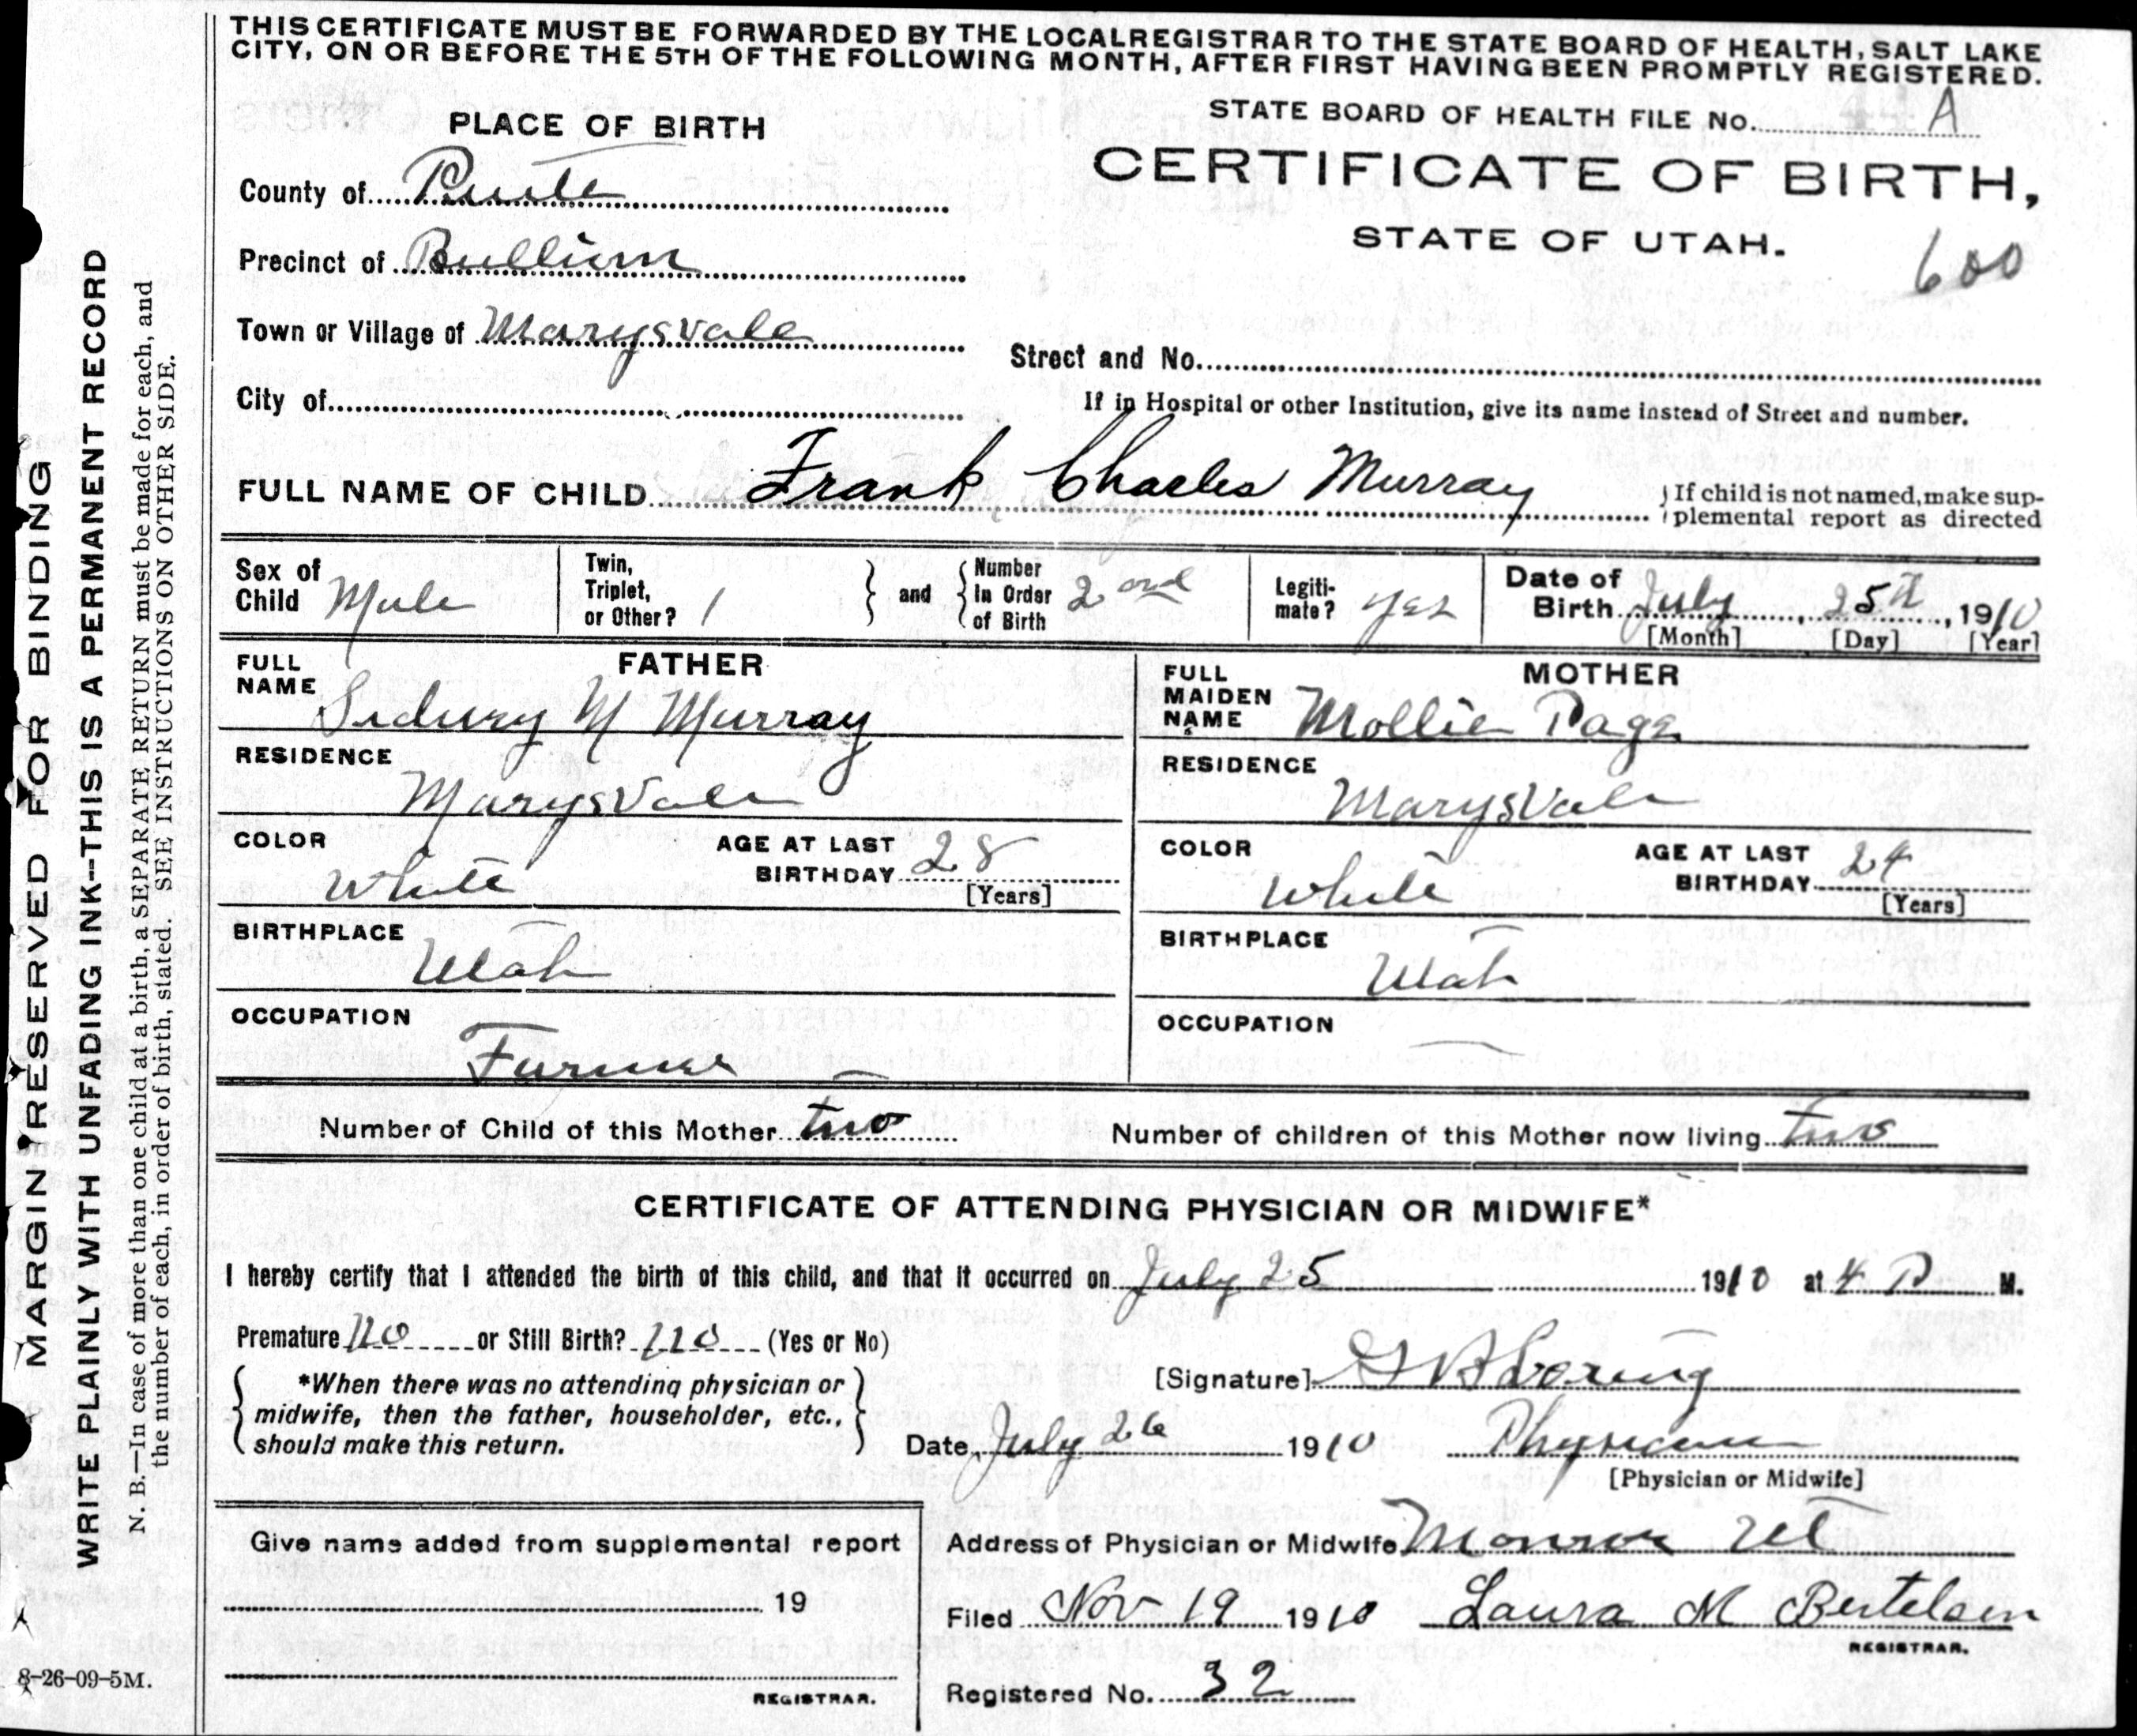 THIS CERTIFICATE MUST BE FORWARDED BY THE LOCAL REGISTRAR TO THE STATE BOARD OF HEALTH, SALT LAKE
CITY, ON OR BEFORE THE 5TH OF THE FOLLOWING MONTH, AFTER FIRST HAVING BEEN PROMPTLY REGISTERED.
STATE BOARD OF HEALTH FILE No. A
PLACE OF BIRTH
CERTIFICATE OF BIRTH,
STATE OF UTAH.
600
County of Piute
Precinct of Bullion
Town or Village of Marysvale
Street and No.
City of
If in Hospital or other Institution, give its name instead of Street and number.
FULL NAME OF CHILD Frank Charles Murray
If child is not named, make sup-
plemental report as directed
Sex of Child Male
Twin, Triplet, or Other? 1
and
Number In Order of Birth 2nd
Legiti-mate? yes
Date of Birth July, 25th, 1910
[Month] [Day] [Year]
FATHER
FULL NAME Sidney M Murray
RESIDENCE
Marysvale
COLOR White
AGE AT LAST BIRTHDAY 28
[Years]
BIRTHPLACE
Utah
OCCUPATION
Farmer
MOTHER
FULL MAIDEN NAME Mollie Page
RESIDENCE
Marysvale
COLOR White
AGE AT LAST BIRTHDAY 24
[Years]
BIRTHPLACE
Utah
OCCUPATION
Number of Child of this Mother two
Number of children of this Mother now living two
CERTIFICATE OF ATTENDING PHYSICIAN OR MIDWIFE*
I hereby certify that I attended the birth of this child, and that it occurred on July 25 1910 at 4 P M.
Premature no or Still Birth? no (Yes or No)
*When there was no attending physician or
midwife, then the father, householder, etc.,
should make this return.
[Signature]
Date July 26 1910 Physician
[Physician or Midwife]
Give name added from supplemental report
19
REGISTRAR.
Address of Physician or Midwife Monroe Ut
Filed Nov 19 1910 Laura M Bertelsen
REGISTRAR.
Registered No. 32
MARGIN RESERVED FOR BINDING
WRITE PLAINLY WITH UNFADING INK--THIS IS A PERMANENT RECORD
N. B.—In case of more than one child at a birth, a SEPARATE RETURN must be made for each, and
the number of each, in order of birth, stated. SEE INSTRUCTIONS ON OTHER SIDE.
8-26-09-5M.